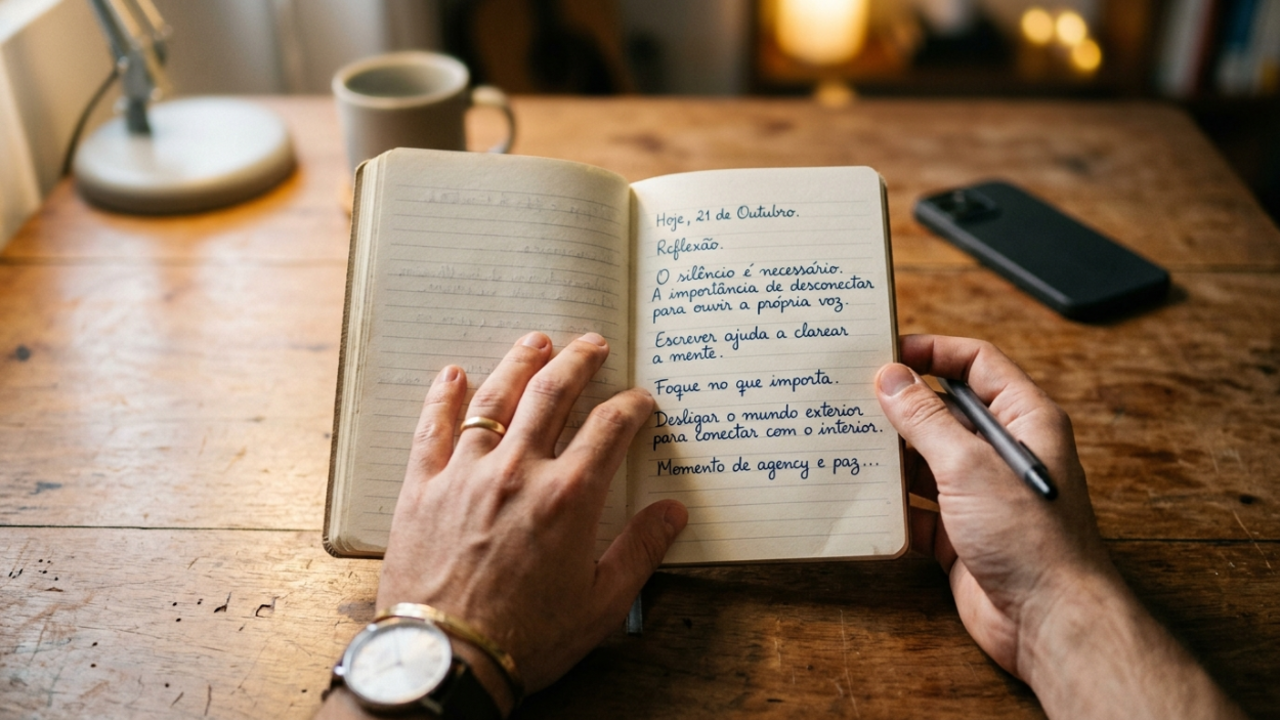 Hoje, 21 de Outubro.
Reflexão.
O silêncio é necessário.
A importância de desconectar
para ouvir a própria voz.
Escrever ajuda a clarear
a mente.
Foque no que importa.
Desligar o mundo exterior
para conectar com o interior.
Momento de agency e paz...